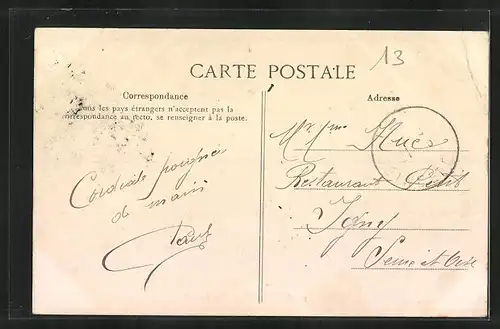 13
CARTE POSTALE
Correspondance
Tous les pays étrangers n'acceptent pas la
correspondance au recto, se renseigner à la poste.
Adresse
Cordiale poignée
de main
Mr Mme Hués
Restaurant Petit
Igny
Seine et Oise